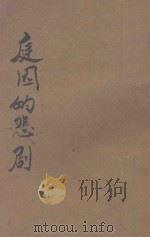 庭因的悲剧
mtoou.info